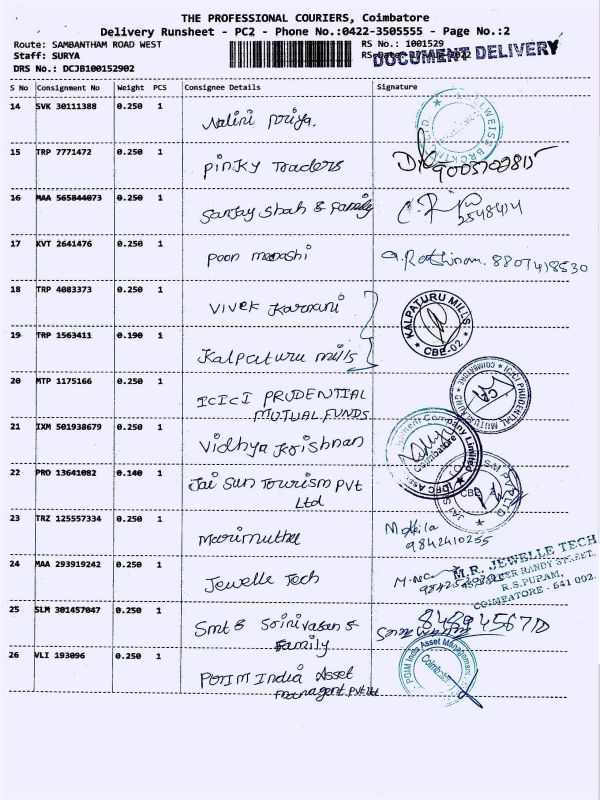 THE PROFESSIONAL COURIERS, Coimbatore
Delivery Runsheet - PC2 - Phone No.:0422-3505555 - Page No.:2
Route: SAMBANTHAM ROAD WEST
RS No.: 1001529
Staff: SURYA
RS Date: 2022
DOCUMENT DELIVERY
DRS No.: DCJB100152902
S No Consignment No Weight PCS Consignee Details Signature
14 SVK 30111388 0.250 1 Nalini priya.
15 TRP 7771472 0.250 1 Pinky Traders
16 MAA 565844073 0.250 1 Sanjay Shah & Family
2548414
17 KVT 2641476 0.250 1 poon manashi G. Rathinam. 8807418530
18 TRP 4083373 0.250 1 Vivek Karnani
KALPATURU MILLS
CBE-02
19 TRP 1563411 0.190 1 Kalpaturu mills
20 MTP 1175166 0.250 1 ICICI PRUDENTIAL
MUTUAL FUNDS
ICICI PRUDENTIAL MUTUAL FUND COIMBATORE
21 IXM 501938679 0.250 1 Vidhya Krishnan
Company Limited
Coimbatore
IDFC Asset
22 PRO 13641082 0.140 1 Jai Sun Tourism Pvt
Ltd
CBE
23 TRZ 125557334 0.250 1 Marimuthu
9842410255
24 MAA 293919242 0.250 1 Jewelle Tech
M.R. JEWELLE TECH
R.S.PURAM,
COIMBATORE - 641 002.
25 SLM 301457047 0.250 1 Smt & Srinivasan &
Family
26 VLI 193096 0.250 1 PGIM India Asset
Managent Pvt Ltd
PGIM India Asset Management
Coimbatore